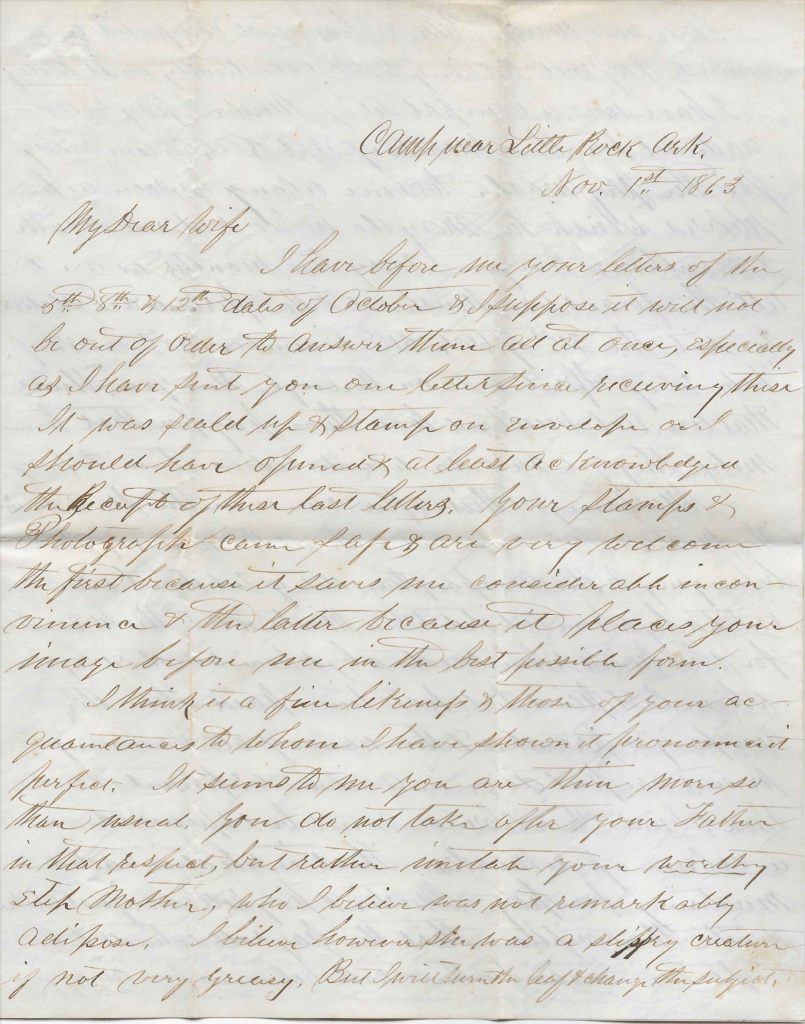 Camp near Little Rock Ark.
Nov. 1st 1863
My Dear Wife
I have before me your letters of the
5th 8th & 12th dates of October & I suppose it will not
be out of order to answer them all at once, especially
as I have sent you one letter since receiving these
It was seald up & stamp on envelope or I
should have opened & at least acknowledged
the Receipt of these last letters. Your Stamps &
Photograph came safe & are very welcome
the first because it saves me considerable incon-
venience & the latter because it places your
image before me in the best possible form.
I think it a fine likeness & those of your ac-
quaintances to whom I have shown it pronounce it
perfect. It seems to me you are thin more so
than usual. You do not take after your Father
in that respect, but rather imitate your worthy
step Mother, who I believe was not remarkably
adipose. I believe however she was a slippry creature
if not very greasy. But I will turn the leaf & change the subject.